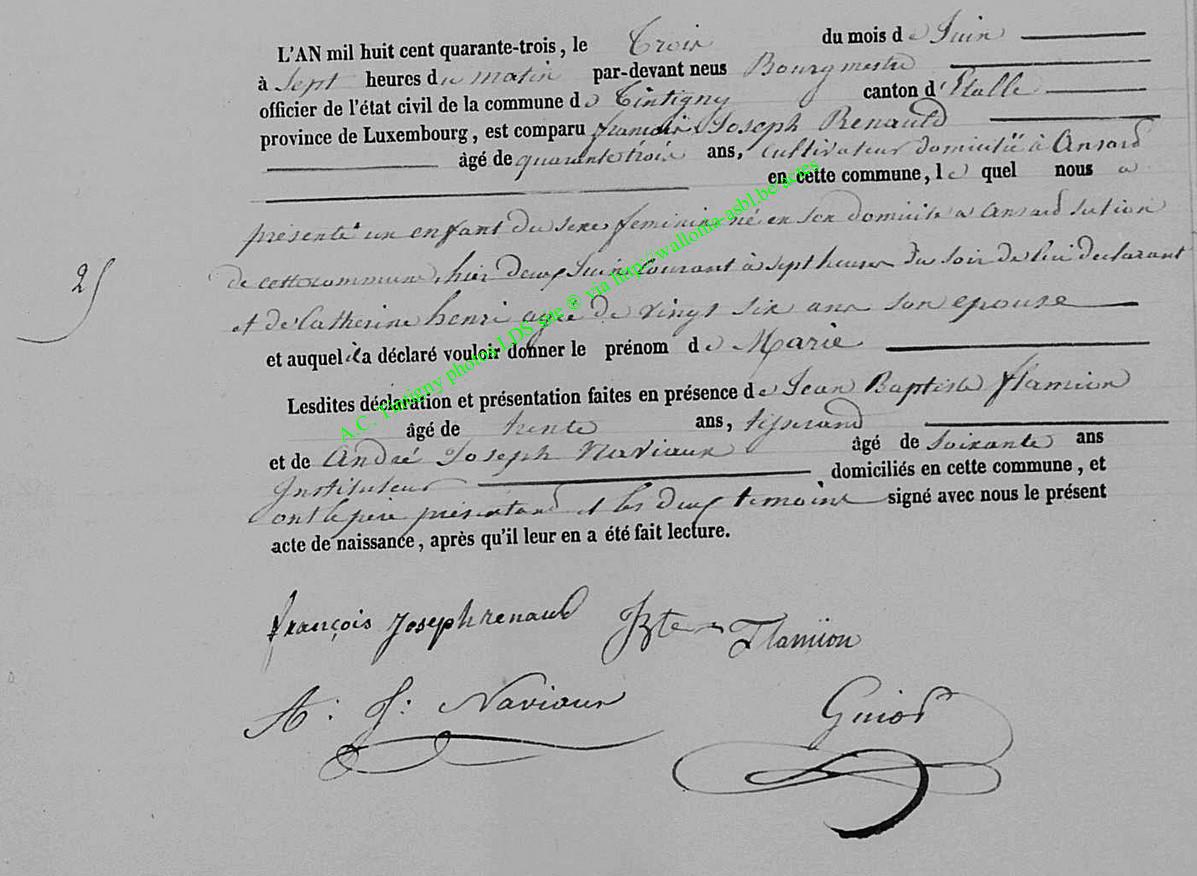 L'AN mil huit cent quarante-trois, le Trois du mois de Juin
à Sept heures du matin par-devant nous Bourgmestre
officier de l'état civil de la commune de Tintigny canton d'Etalle
province de Luxembourg, est comparu françois Joseph Renauld
âgé de quarante trois ans, cultivateur domicilié à Ansard
en cette commune, le quel nous a
présenté un enfant du sexe feminin né en son domicile a Ansard section
de cette commune, hier deux Juin courant à sept heures du soir de lui declarant
25
et de Catherine henri agée de vingt six ans son epouse
et auquel il a déclaré vouloir donner le prénom de Marie
Lesdites déclaration et présentation faites en présence de Jean Baptiste flamion
âgé de trente ans, tisserand
et de André Joseph Naviaux âgé de soixante ans
Instituteur domiciliés en cette commune, et
ont le pere présentant et les deux temoins signé avec nous le présent
acte de naissance, après qu'il leur en a été fait lecture.
françois Joseph renauld Jbte Flamion
A: J: Naviaux Guiot
A.C. Tintigny photos LDS site ® via http://wallonia-asbl.be/actes